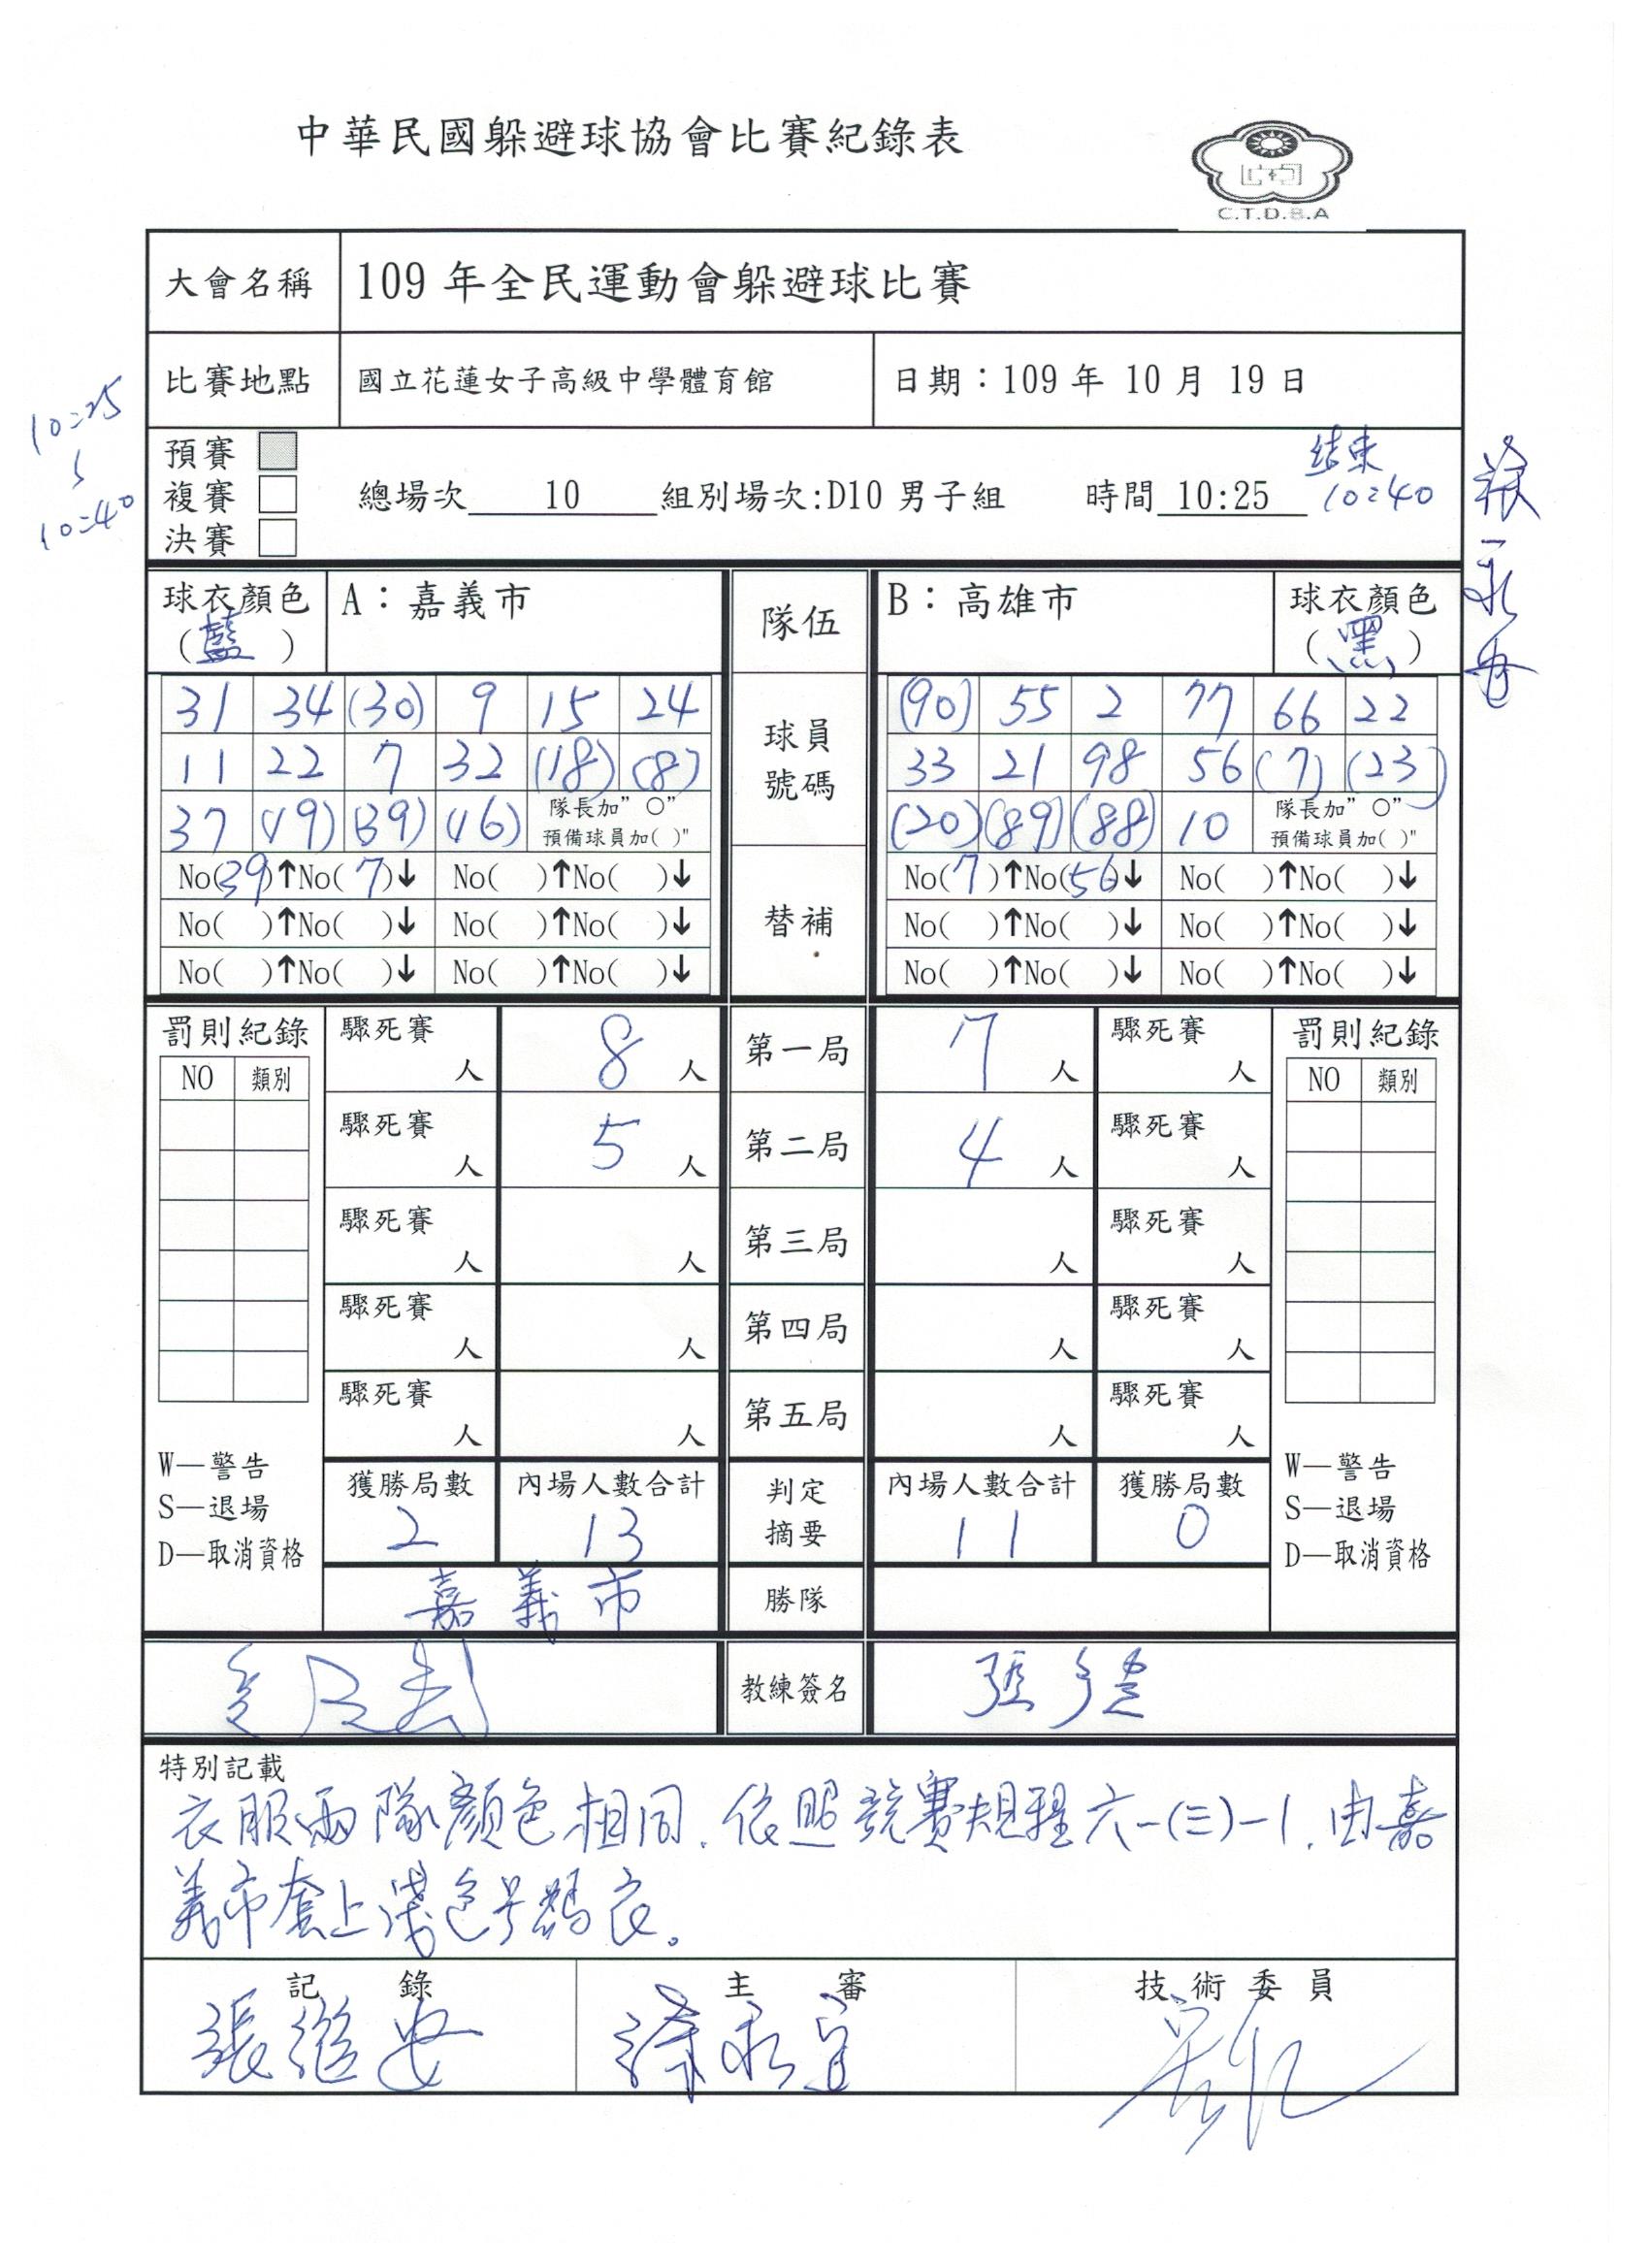 中華民國躲避球協會比賽紀錄表
C.T.D.B.A
大會名稱 109 年全民運動會躲避球比賽
比賽地點 國立花蓮女子高級中學體育館 日期：109 年 10 月 19 日
10:25
10:40
預賽
複賽
決賽
總場次 10 組別場次:D10 男子組 時間 10:25
结束
10:40
球衣顏色 A：嘉義市 隊伍 B：高雄市 球衣顏色
(藍) (黑)
31 34 (30) 9 15 24 球員 (90) 55 2 77 66 22
11 22 7 32 (18) (8) 號碼 33 21 98 56 (7) (23)
37 (19) (39) (16) 隊長加"○" (20) (89) (88) 10 隊長加"○"
預備球員加( )" 預備球員加( )"
No(39)↑No(7)↓ No( )↑No( )↓ No(7)↑No(56)↓ No( )↑No( )↓
No( )↑No( )↓ No( )↑No( )↓ 替補 No( )↑No( )↓ No( )↑No( )↓
No( )↑No( )↓ No( )↑No( )↓ No( )↑No( )↓ No( )↑No( )↓
罰則紀錄 驟死賽 人 8 人 第一局 7 人 驟死賽 人 罰則紀錄
NO 類別 NO 類別
驟死賽 人 5 人 第二局 4 人 驟死賽 人
驟死賽 人 人 第三局 人 驟死賽 人
驟死賽 人 人 第四局 人 驟死賽 人
驟死賽 人 人 第五局 人 驟死賽 人
W—警告 W—警告
S—退場 S—退場
D—取消資格 D—取消資格
獲勝局數 內場人數合計 判定 內場人數合計 獲勝局數
2 13 摘要 11 0
嘉義市 勝隊
教練簽名
特別記載
衣服兩隊顏色相同. 依照競賽規程六-(三)-1. 由嘉
義市套上淺色号碼衣。
記錄 主審 技術委員
張繼安